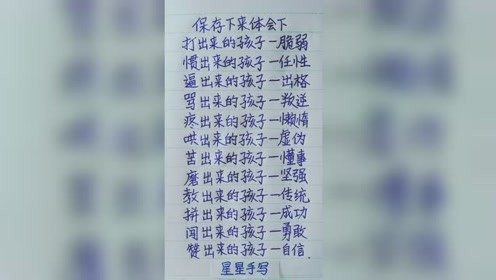 保存下来体会下
打出来的孩子一脆弱
惯出来的孩子一任性
逼出来的孩子一出格
骂出来的孩子一叛逆
疼出来的孩子一懒惰
哄出来的孩子一虚伪
苦出来的孩子一懂事
磨出来的孩子一坚强
教出来的孩子一传统
拼出来的孩子一成功
闯出来的孩子一勇敢
赞出来的孩子一自信.
星星手写